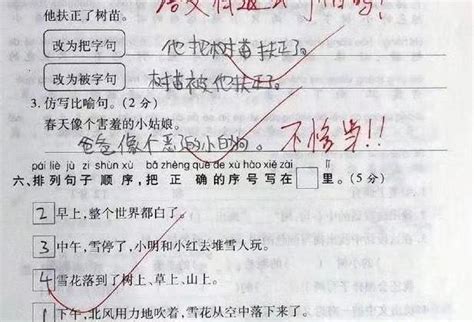 他扶正了树苗。
改为把字句
他把树苗扶正了。
改为被字句
树苗被他扶正了。
3.仿写比喻句。(2分)
春天像个害羞的小姑娘。
爸爸像个 的小白狗。
不修当!!
pái liè jù zi shùn xù bǎ zhèng què de xù hào xiě zài lǐ
六、排列句子 顺序,把 正 确的序号写在 里。(5分)
2 早上,整个世界都白了。
3 中午,雪停了,小明和小红去堆雪人玩。
4 雪花落到了树上、草上、山上。
1 下午,北风用力地吹着,雪花从空中落下来了。